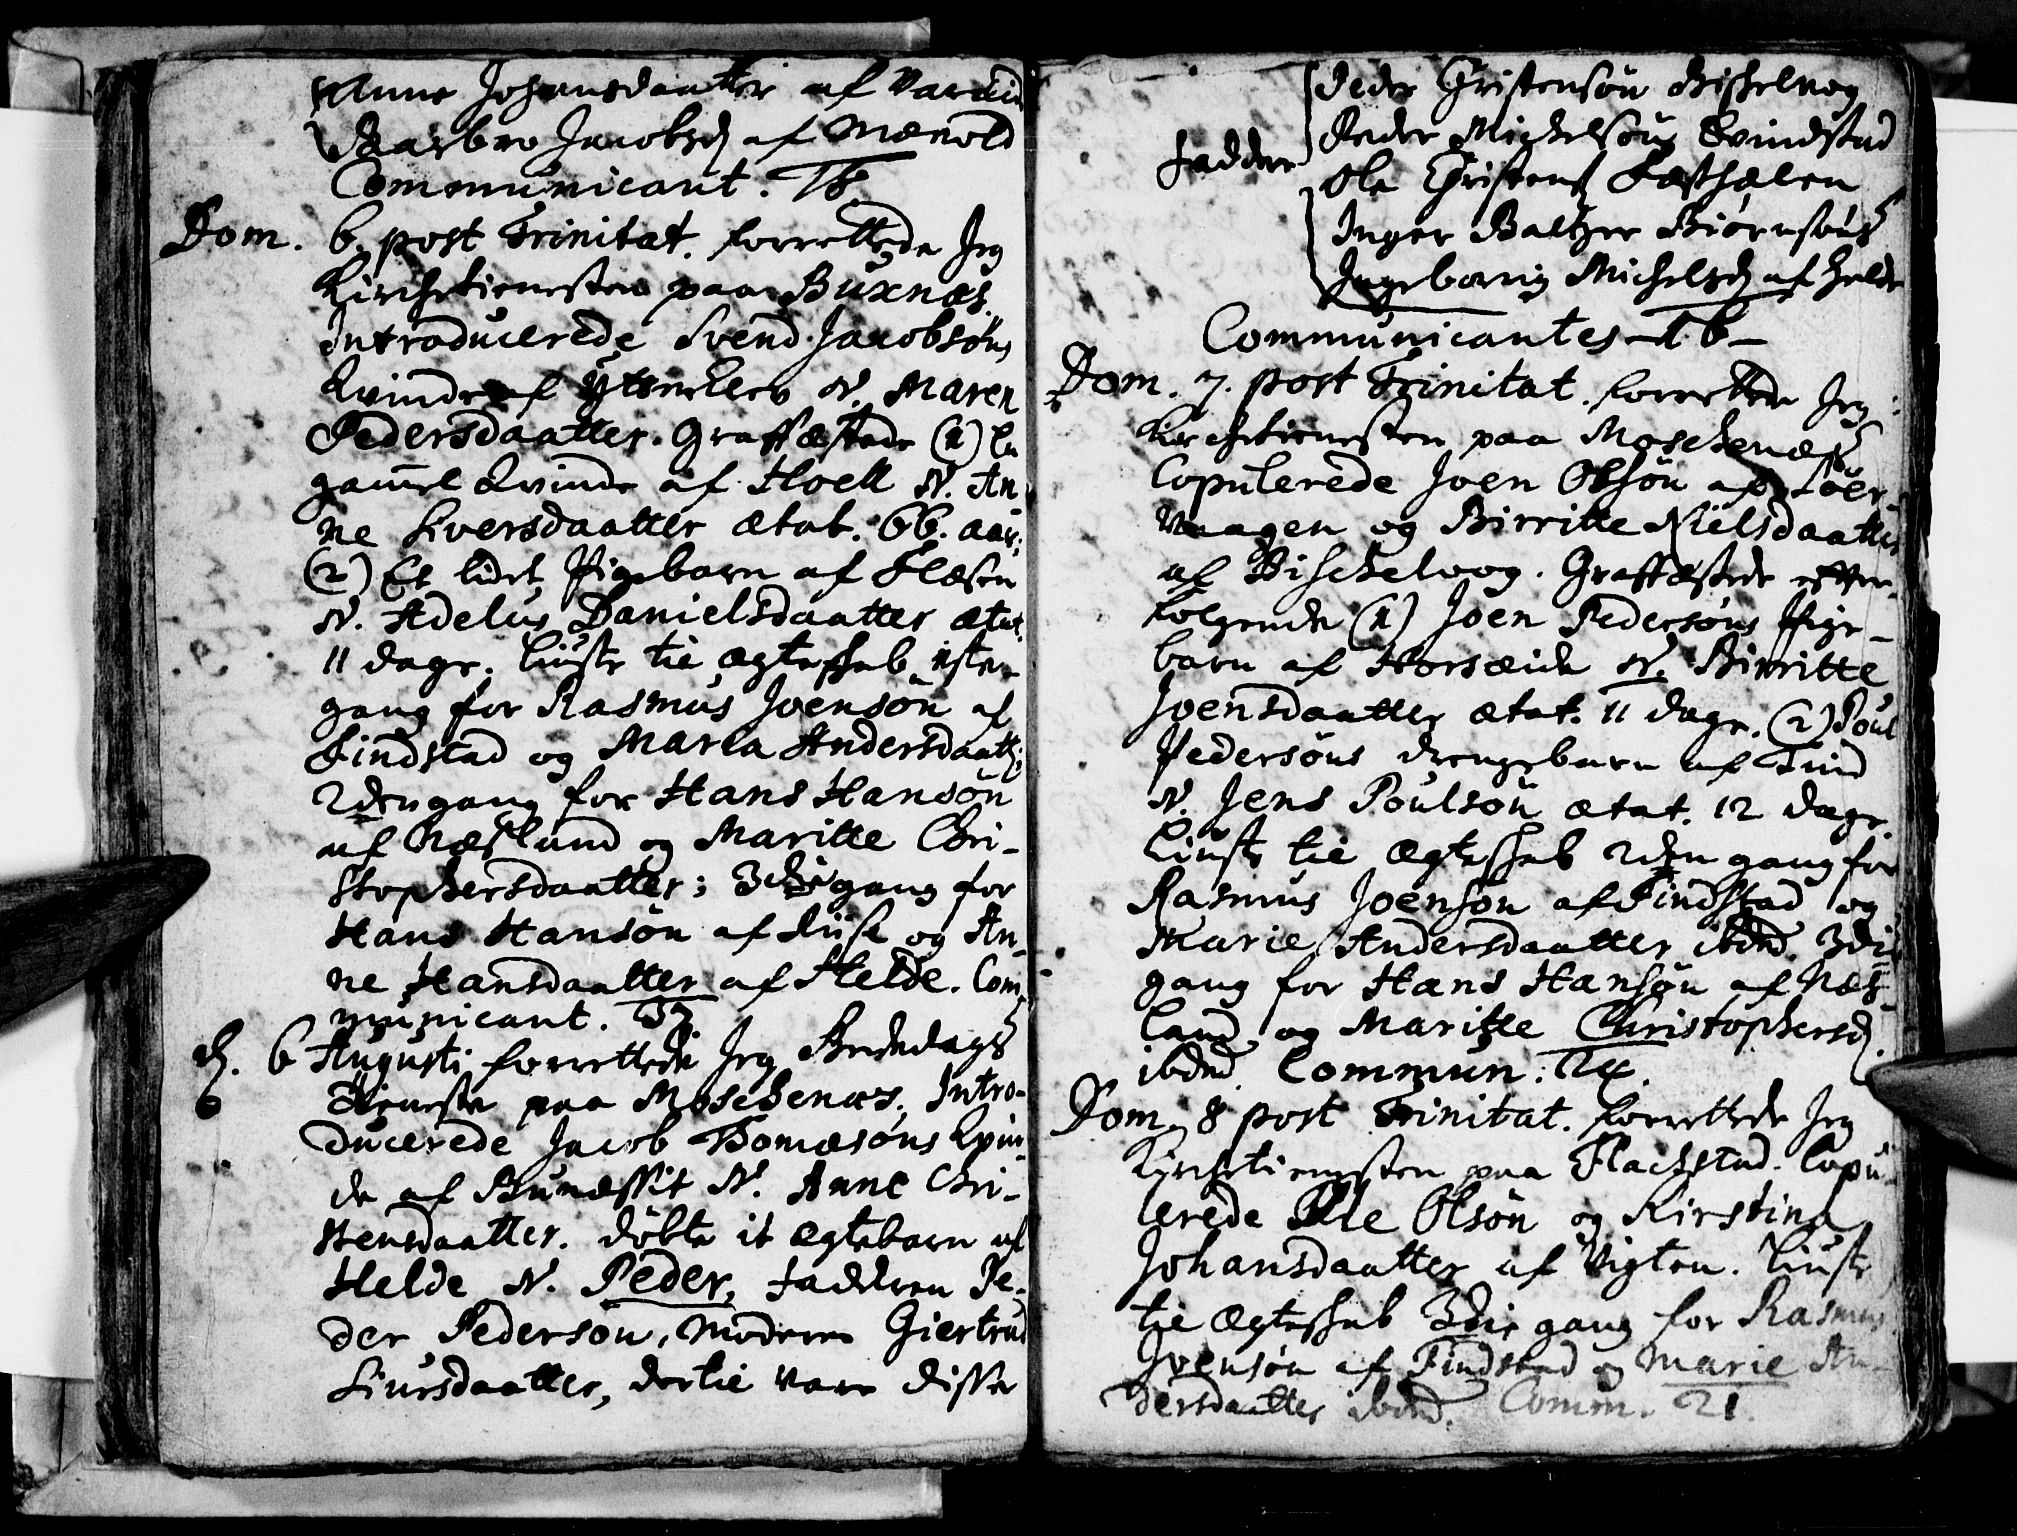 Anne Johansdaatter af
Jacobsd af Mærvold
Communicant.
Dom. 6. post Trinitat. forrettede Jeg
Kirchetienesten paa Buxnæs.
Introducerede Svend Jacobsøns
Kvinde af Yttersteb N. Maren
Pedersdaatter. Graffæstede (1) En
gammel Kvinde af Hoell N. An
ne Siversdaatter ætat. 66. aar;
(2) Et lidet Pigebarn af Flæsen
N. Adelus Danielsdaatter ætat.
11 dage. Liuste til ægteskab 1ste
gang for Rasmus Joensøn af
Findstad og Maria Andersdaatt;
2den gang for Hans Hansøn
af Næsland og Maritte Chri-
stophersdaatter; 3die gang for
Hans Hansøn af og An-
ne Hansdaatter af Helde. Com
municant.
d. 6 Augusti forrettede Jeg Bededags
Tieneste paa Moschenæs. Intro-
ducerede Jacob Thomæsøns Kvin-
de af Bunæssit N. Anne Chri-
stensdaatter. døbte it ægtebarn af
Helde N. Peder, Faderen Pe-
der Pedersøn, Moderen Giertrud
Siursdaatter, dertil vare disse
Faddere
Peder Christensøn Bischelvog
Peder Michelsøn Evindstad
Ole Christens
Inger Baltzer Biørnsøns
Ingeborrig Michelsd af Helde
Communicantes 16
Dom. 7. post Trinitat. forrettede Jeg
Kirchetienesten paa Moschenæs
Copulerede Joen Olsøn af Søer-
vaagen og Birritte Nielsdaatter
af Bischelvog. Graffæstede effter-
følgende (1) Joen Pedersøns Pige-
barn af Horsæide N. Birritte
Joensdaatter ætat. 11 dage. (2) Poul
Pedersøns drengebarn af Tind
N. Jens Poulsøn ætat. 12 dage.
Liuste til Ægteskab 2den gang for
Rasmus Joensøn af Findstad og
Marie Andersdaatter ibdm. 3die
gang for Hans Hansøn af Næs-
land og Maritte Christophersd.
ibdm. Commun. 24.
Dom. 8 post Trinitat. forrettede Jeg
Kirchetienesten paa Flachstad. Copu-
lerede Ole Olsøn og Kirstina
Johansdaatter af Vigten. Liuste
til Ægteskab 3die gang for Rasmus
Joensøn af Findstad og Marie An-
dersdaatter ibdm. Comm. 21.